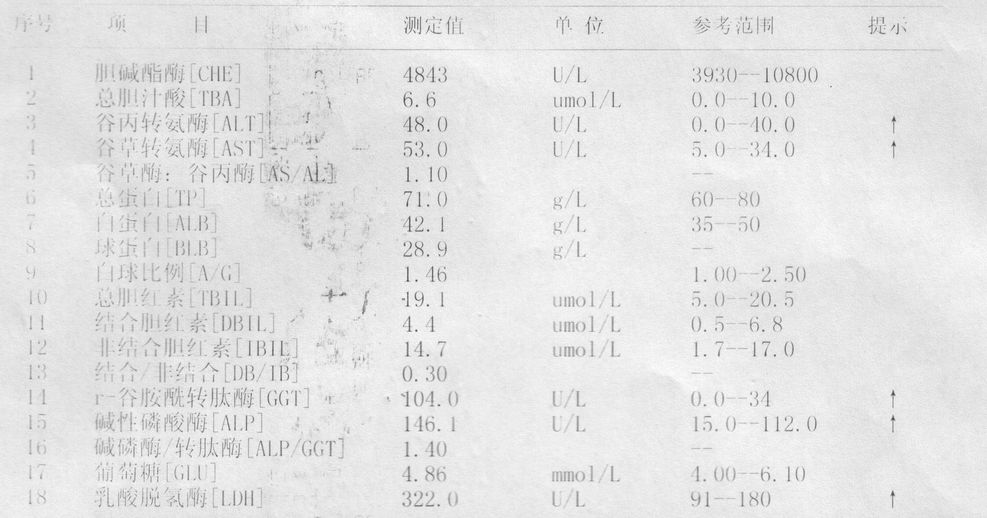 序号 项 目 测定值 单 位 参考范围 提示
1 胆碱酯酶[CHE] 4843 U/L 3930--10800
2 总胆汁酸[TBA] 6.6 umol/L 0.0--10.0
3 谷丙转氨酶[ALT] 48.0 U/L 0.0--40.0 ↑
4 谷草转氨酶[AST] 53.0 U/L 5.0--34.0 ↑
5 谷草酶: 谷丙酶[AS/AL] 1.10 --
6 总蛋白[TP] 71.0 g/L 60--80
7 白蛋白[ALB] 42.1 g/L 35--50
8 球蛋白[BLB] 28.9 g/L --
9 白球比例[A/G] 1.46 1.00--2.50
10 总胆红素[TBIL] 19.1 umol/L 5.0--20.5
11 结合胆红素[DBIL] 4.4 umol/L 0.5--6.8
12 非结合胆红素[IBIL] 14.7 umol/L 1.7--17.0
13 结合/非结合[DB/IB] 0.30 --
14 r-谷胺酰转肽酶[GGT] 104.0 U/L 0.0--34 ↑
15 碱性磷酸酶[ALP] 146.1 U/L 15.0--112.0 ↑
16 碱磷酶/转肽酶[ALP/GGT] 1.40 --
17 葡萄糖[GLU] 4.86 mmol/L 4.00--6.10
18 乳酸脱氢酶[LDH] 322.0 U/L 91--180 ↑